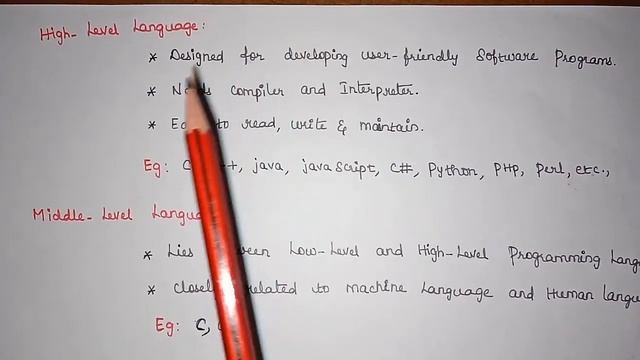 High-Level Language:
* Designed for developing user-friendly Software Programs.
* compiler and Interpreter.
* to read, write & maintain.
Eg: java, javascript, C#, Python, PHP, Perl, etc.,
Middle-Level
* Lies Low-Level and High-Level Programming
* related to machine Language and Human
Eg: C,